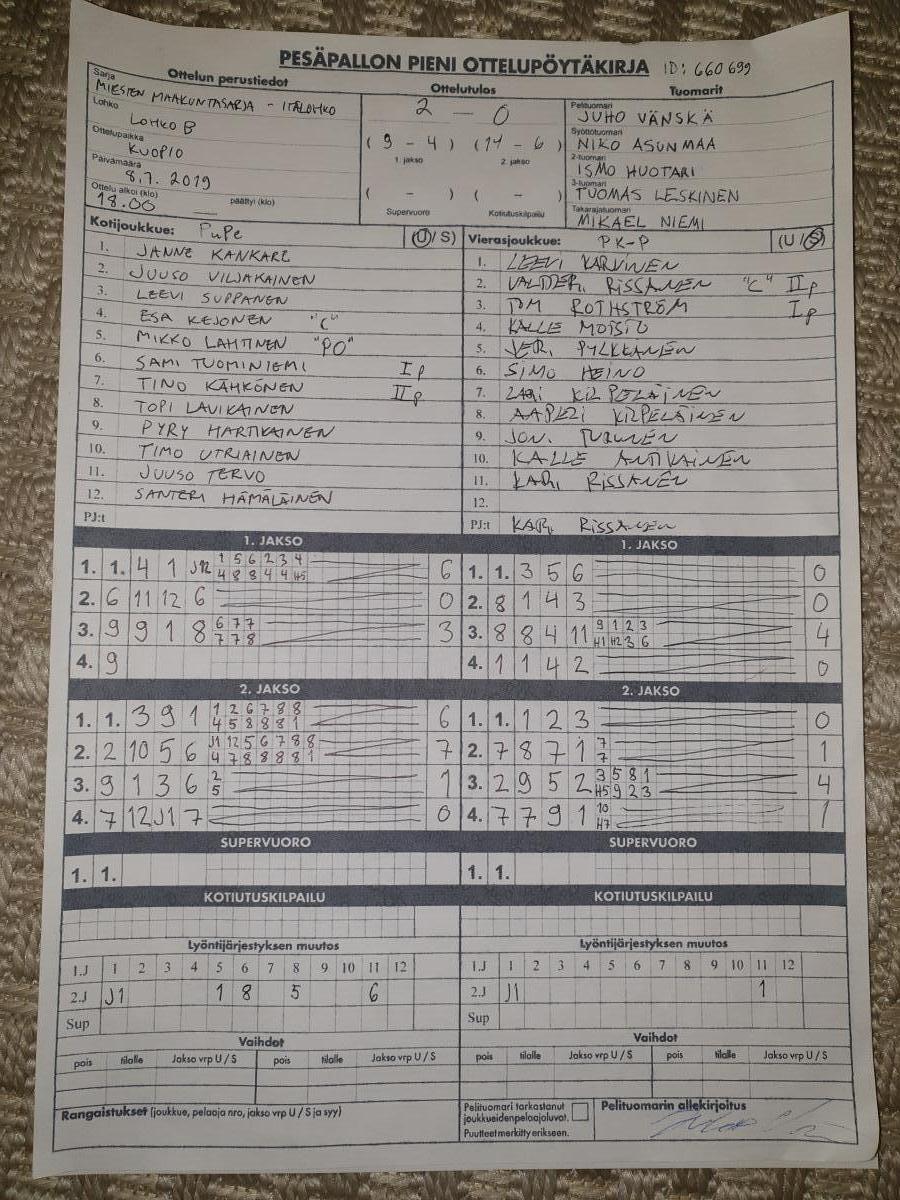 PESÄPALLON PIENI OTTELUPÖYTÄKIRJA ID: 660 699
Ottelun perustiedot
Sarja
MIESTEN MAAKUNTASARJA - ITÄLOHKO
Lohko
LOHKO B
Ottelupaikka
KUOPIO
Päivämäärä
8.7. 2019
Ottelu alkoi (klo) päättyi (klo)
18.00
Ottelutulos
2 - 0
(9 - 4) (14 - 6)
1. jakso 2. jakso
( - ) ( - )
Supervuoro Kotiutuskilpailu
Tuomarit
Pelituomari
JUHO VÄNSKÄ
Syöttötuomari
NIKO ASUNMAA
2-tuomari
ISMO HUOTARI
3-tuomari
TUOMAS LESKINEN
Takarajatuomari
MIKAEL NIEMI
Kotijoukkue: PuPe (U / S)
1. JANNE KANKARE
2. JUUSO VILJAKAINEN
3. LEEVI SUPPANEN
4. ESA KEJONEN "C"
5. MIKKO LAHTINEN "PO"
6. SAMI TUOMINIEMI I p
7. TINO KÄHKÖNEN II p
8. TOPI LAVIKAINEN
9. PYRY HARTIKAINEN
10. TIMO UTRIAINEN
11. JUUSO TERVO
12. SANTERI HÄMÄLÄINEN
PJ:t
Vierasjoukkue: PK-P (U / S)
1. LEEVI KARVINEN
2. RISSANEN "C" II p
3. TOM ROTHSTRÖM I p
4. KALLE MOISIO
5. PYLKKÄNEN
6. SIMO HEINO
7. KILPELÄINEN
8. KILPELÄINEN
9.
10. KALLE ANTIKAINEN
11. KARI RISSANEN
12.
PJ:t KARI RISSANEN
1. JAKSO
1. 1. 4 1 J12 1 5 6 2 3 4 6
4 8 8 4 4 H5
2. 6 11 12 6 0
3. 9 9 1 8 6 7 7 3
7 7 8
4. 9
1. JAKSO
1. 1. 3 5 6 0
2. 8 1 4 3 0
3. 8 8 4 11 9 1 2 3 4
H1 H2 3 6
4. 1 1 4 2 0
2. JAKSO
1. 1. 3 9 1 1 2 6 7 8 8 6
4 5 8 8 8 1
2. 2 10 5 6 J1 12 5 6 7 8 8 7
4 7 8 8 8 8 1
3. 9 1 3 6 2 1
5
4. 7 12 J1 7 0
2. JAKSO
1. 1. 1 2 3 0
2. 7 8 7 1 7 1
7
3. 2 9 5 2 3 5 8 1 4
H5 9 2 3
4. 7 7 9 1 10 1
H7
SUPERVUORO
1. 1.
SUPERVUORO
1. 1.
KOTIUTUSKILPAILU
KOTIUTUSKILPAILU
Lyöntijärjestyksen muutos
1.J 1 2 3 4 5 6 7 8 9 10 11 12
2.J J1 1 8 5 6
Sup
Lyöntijärjestyksen muutos
1.J 1 2 3 4 5 6 7 8 9 10 11 12
2.J J1 1
Sup
Vaihdot
pois tilalle Jakso vrp U / S pois tilalle Jakso vrp U / S
Vaihdot
pois tilalle Jakso vrp U / S pois tilalle Jakso vrp U / S
Rangaistukset (joukkue, pelaaja nro, jakso vrp U / S ja syy)
Pelituomari tarkastanut
joukkueiden pelaajaluvat.
Puutteet merkitty erikseen.
Pelituomarin allekirjoitus